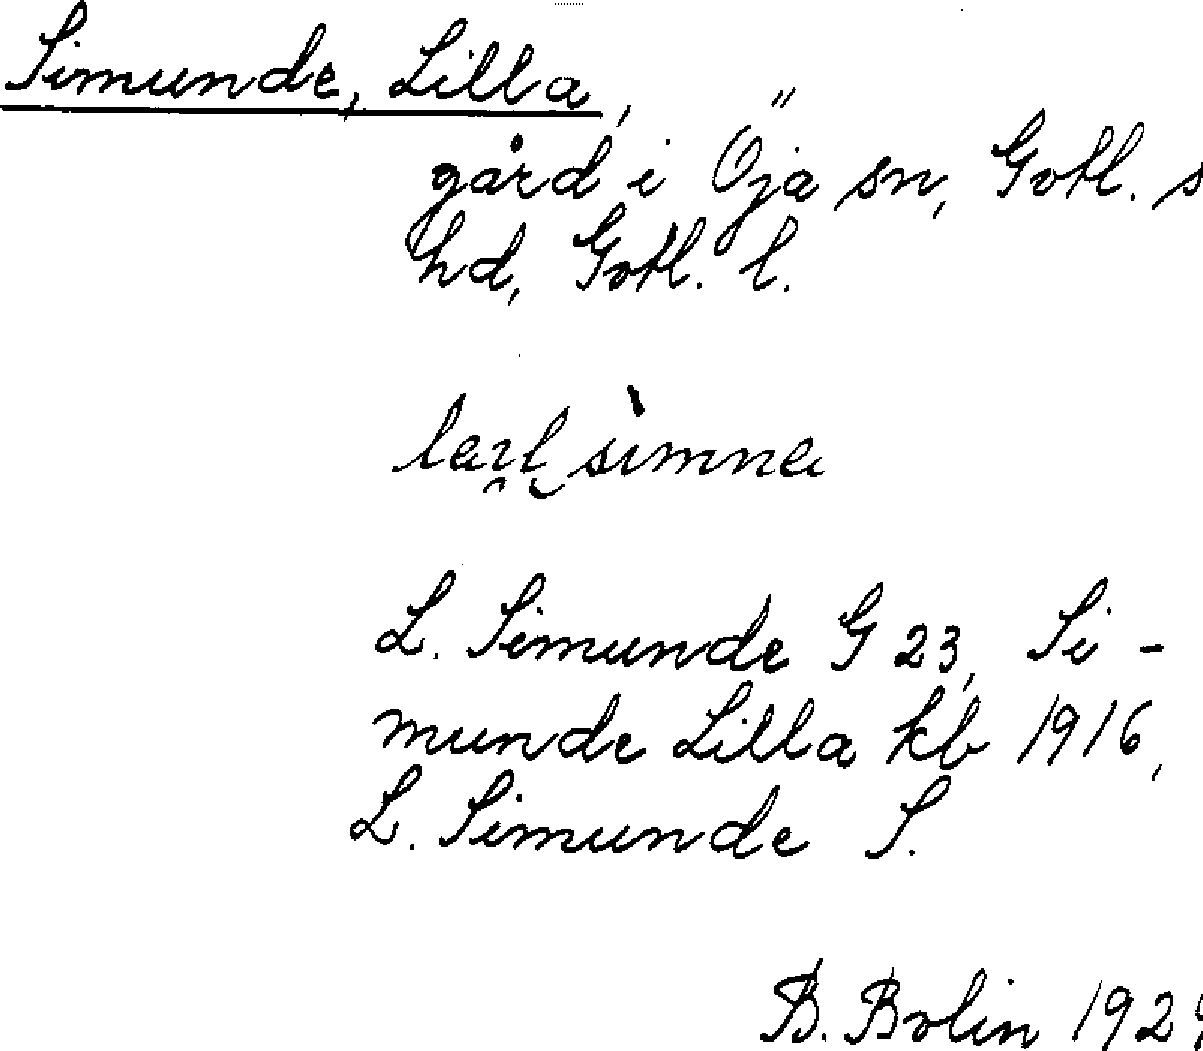 Simunde, Lilla,
gård i Öja sn, Gotl. s
hd, Gotl. l.
L. Simunde G 23, Si-
munde Lilla kb 1916,
L. Simunde S.
B. Bolin 192